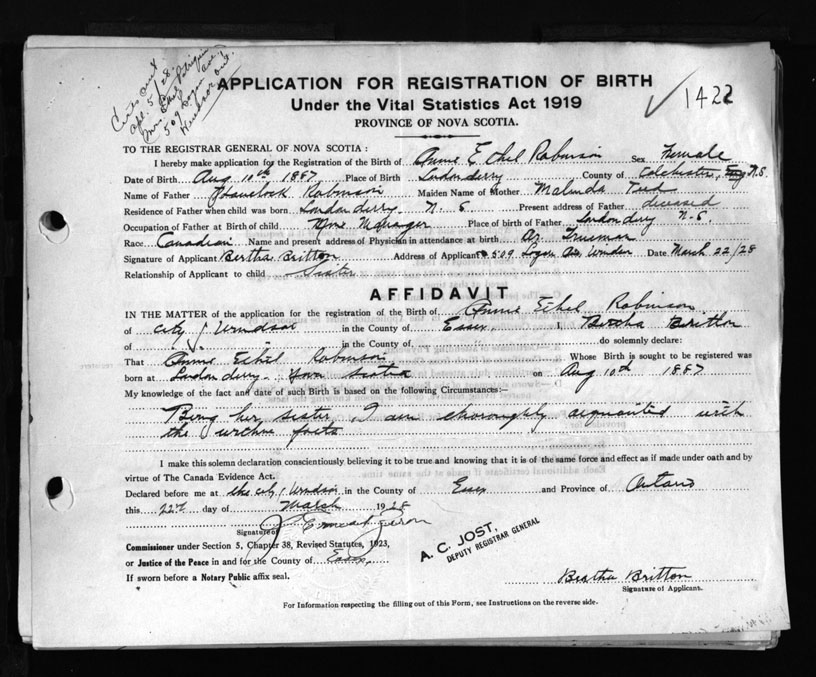 Certs out
Apl. 5/28.
509 Logan Ave
Windsor Ont.
APPLICATION FOR REGISTRATION OF BIRTH
Under the Vital Statistics Act 1919
PROVINCE OF NOVA SCOTIA.
1422
TO THE REGISTRAR GENERAL OF NOVA SCOTIA:
I hereby make application for the Registration of the Birth of Annie Ethel Robinson Sex Female
Date of Birth Aug 10th 1887 Place of Birth Londonderry County of Colchester, N.S.
Name of Father Robinson Maiden Name of Mother Malinda
Residence of Father when child was born Londonderry N. S Present address of Father deceased
Occupation of Father at Birth of child Mine Manager Place of birth of Father Londonderry N-S.
Race Canadian Name and present address of Physician in attendance at birth Dr.
Signature of Applicant Bertha Britton Address of Applicant 509 Logan Ave Windsor Date March 22/28
Relationship of Applicant to child Sister
AFFIDAVIT
IN THE MATTER of the application for the registration of the Birth of Annie Ethel Robinson
of City of Windsor in the County of Essex I, Bertha Britton
of in the County of do solemnly declare:
That Annie Ethel Robinson Whose Birth is sought to be registered was
born at Londonderry Nova Scotia on Aug 10th 1887
My knowledge of the fact and date of such Birth is based on the following Circumstances:—
Being her sister, I am thoroughly acquainted with
the within facts
I make this solemn declaration conscientiously believing it to be true and knowing that it is of the same force and effect as if made under oath and by
virtue of The Canada Evidence Act.
Declared before me at the city of Windsor in the County of Essex and Province of Ontario
this 22nd day of March 1928
Signature of
Commissioner under Section 5, Chapter 38, Revised Statutes, 1923,
or Justice of the Peace in and for the County of Essex
If sworn before a Notary Public affix seal.
A. C. JOST,
DEPUTY REGISTRAR GENERAL
Bertha Britton
Signature of Applicant.
For Information respecting the filling out of this Form, see Instructions on the reverse side.